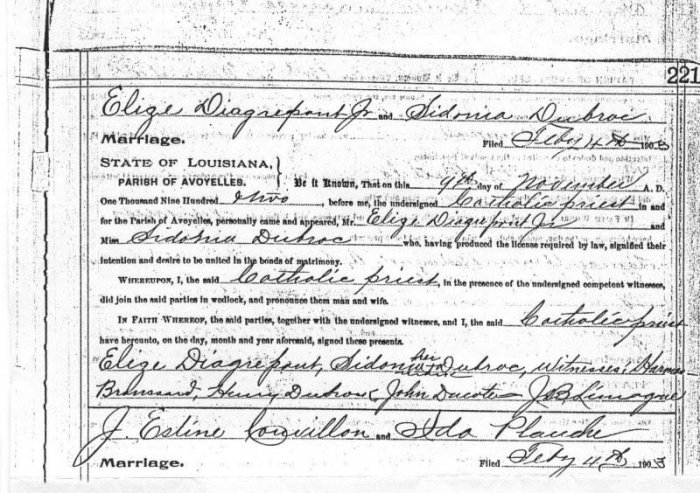 221
Elize Diagrepont Jr and Sidonia Dubroc
Marriage. Filed Feby 4th 1903
STATE OF LOUISIANA,
PARISH OF AVOYELLES. Be it Known, That on this 9th day of November A. D.
One Thousand Nine Hundred & two, before me, the undersigned Catholic priest in and
for the Parish of Avoyelles, personally came and appeared, Mr. Elize Diagrepont Jr and
Miss Sidonia Dubroc who, having produced the license required by law, signified their
intention and desire to be united in the bonds of matrimony.
WHEREUPON, I, the said Catholic priest, in the presence of the undersigned competent witnesses,
did join the said parties in wedlock, and pronounce them man and wife.
IN FAITH WHEREOF, the said parties, together with the undersigned witnesses, and I, the said Catholic priest
have hereunto, on the day, month and year aforesaid, signed these presents.
Elize Diagrepont, Sidonia her Dubroc, witnesses,
Broussard, Henry Dubroc, John Ducote J.B. Limagne
J. Estine Couvillon and Ida Plauche
Marriage. Filed Feby 4th 1903